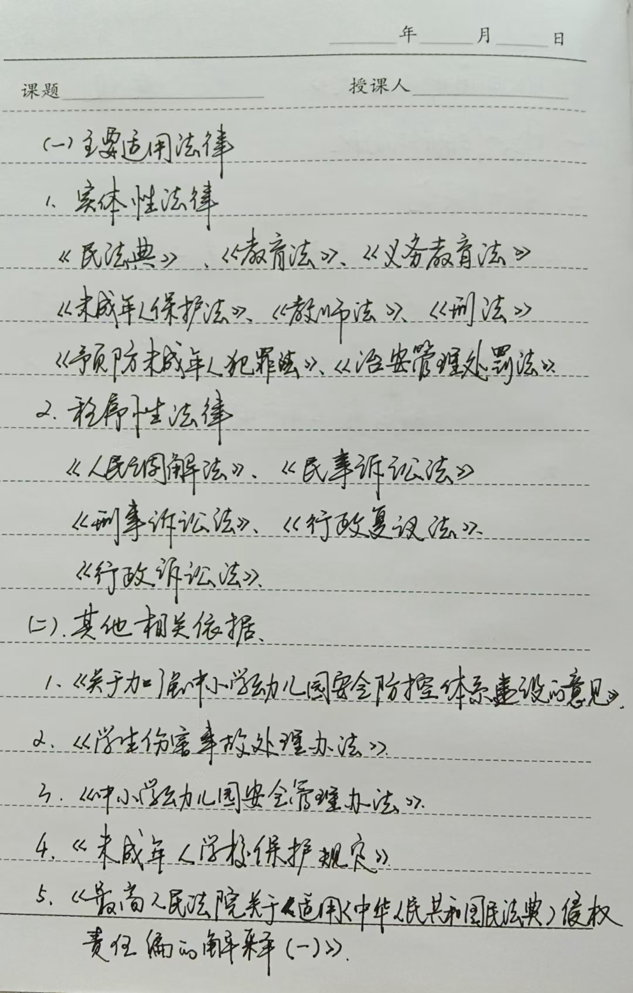 ____年____月____日
课题____________ 授课人____________
(一)主要适用法律
1、实体性法律
《民法典》、《教育法》、《义务教育法》
《未成年人保护法》、《教师法》、《刑法》
《预防未成年人犯罪法》、《治安管理处罚法》.
2. 程序性法律
《人民调解法》、《民事诉讼法》
《刑事诉讼法》、《行政复议法》、
《行政诉讼法》.
(二).其他相关依据.
1、《关于加强中小学幼儿园安全防控体系建设的意见》.
2、《学生伤害事故处理办法》.
3.《中小学幼儿园安全管理办法》.
4.《未成年人学校保护规定》.
5.《最高人民法院关于《适用〈中华人民共和国民法典〉侵权
责任编的解释(一)》.